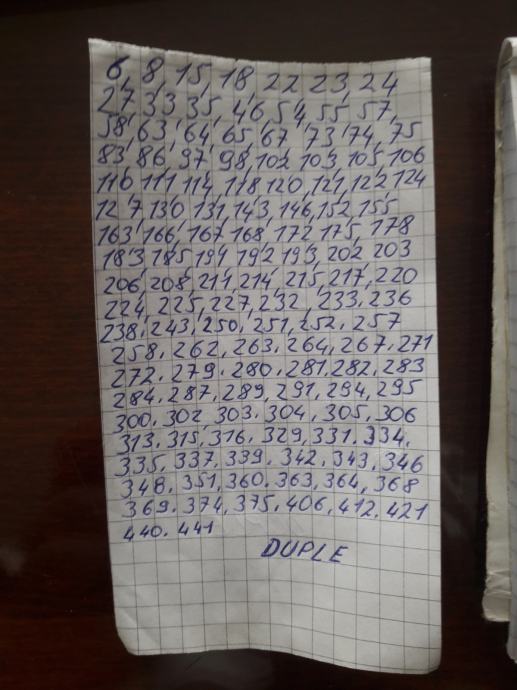 6, 8, 15, 18, 22, 23, 24
27, 33, 35, 46, 54, 55, 57,
58, 63, 64, 65, 67, 73, 74, 75
83, 86, 97, 98, 102, 103, 105, 106
110, 111, 114, 118, 120, 121, 122, 124
127, 130, 131, 143, 146, 152, 155
163, 166, 167, 168, 172, 175, 178
183, 185, 191, 192, 193, 202, 203
206, 208, 211, 214, 215, 217, 220
224, 225, 227, 232, 233, 236
238, 243, 250, 251, 252, 257
258, 262, 263, 264, 267, 271
272, 279, 280, 281, 282, 283
284, 287, 289, 291, 294, 295
300, 302, 303, 304, 305, 306
313, 315, 316, 329, 331, 334,
335, 337, 339, 342, 343, 346
348, 351, 360, 363, 364, 368
369, 374, 375, 406, 412, 421
440, 441
DUPLE